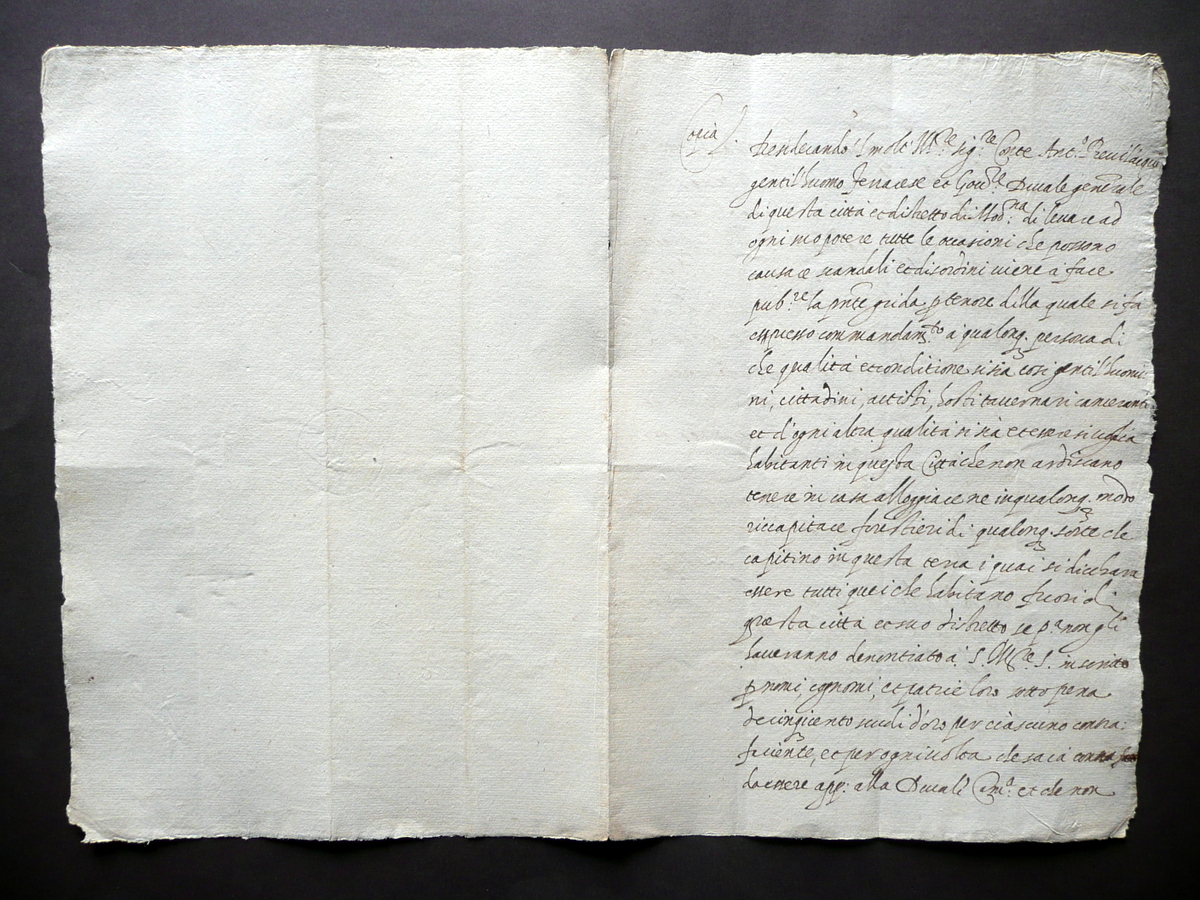 Copia
Desiderando il molt' Mag.re sig.re Conte Ant.o Bevilacqua
gentil'huomo ferrarese et Gov.re Ducale generale
di questa città et distretto di Mod.na di levare ad
ogni suo potere tutte le occasioni che possono
causare scandali et disordini viene à fare
pub.re la pnte grida p tenore della quale si fa
espresso commandam.to a qualonq. persona di
che qualità et conditione si sia cosi gentil'huomi
ni, cittadini, artisti, hosti tavernari cameranti
et d'ogni altra qualità si sia et essere si voglia
habitanti in questa Città che non ardiscano
tenere in casa alloggiare ne in qualonq. modo
riccapitare forestieri di qualonq. sorte che
capitino in questa terra i quai si dichiara
essere tutti quei che habitano fuori di
questa città et suo distretto se p.a non gli
haveranno denontiato à S. M. S. in scritto
p nomi, cognomi, et patrie loro sotto pena
de cinquento scudi d'oro per ciascuno contra
faciente, et per ogni volta che sarà contrafatto
da essere app. alla Ducal Cam.a et che non